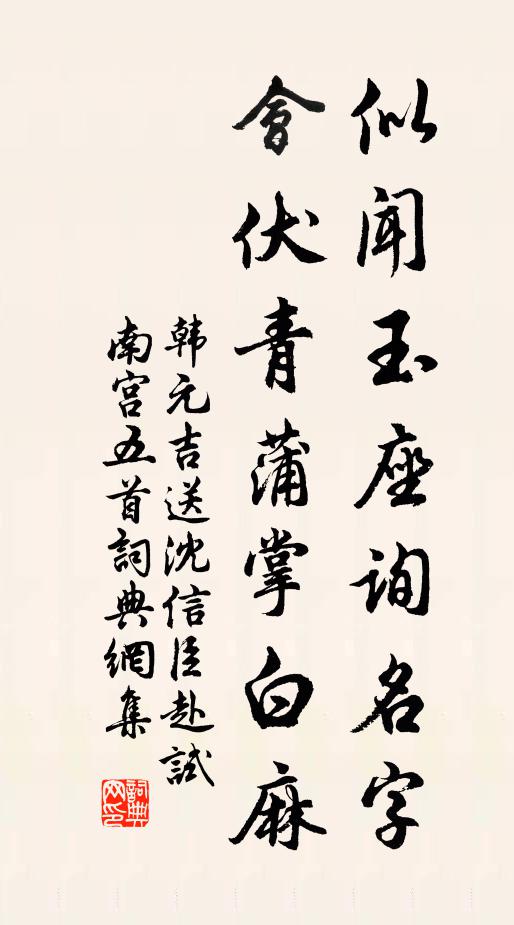 似闻玉座询名字
會伏青蒲掌白麻
韩元吉送沈信臣赴試
南宫五首詞典網集
詞典
网印